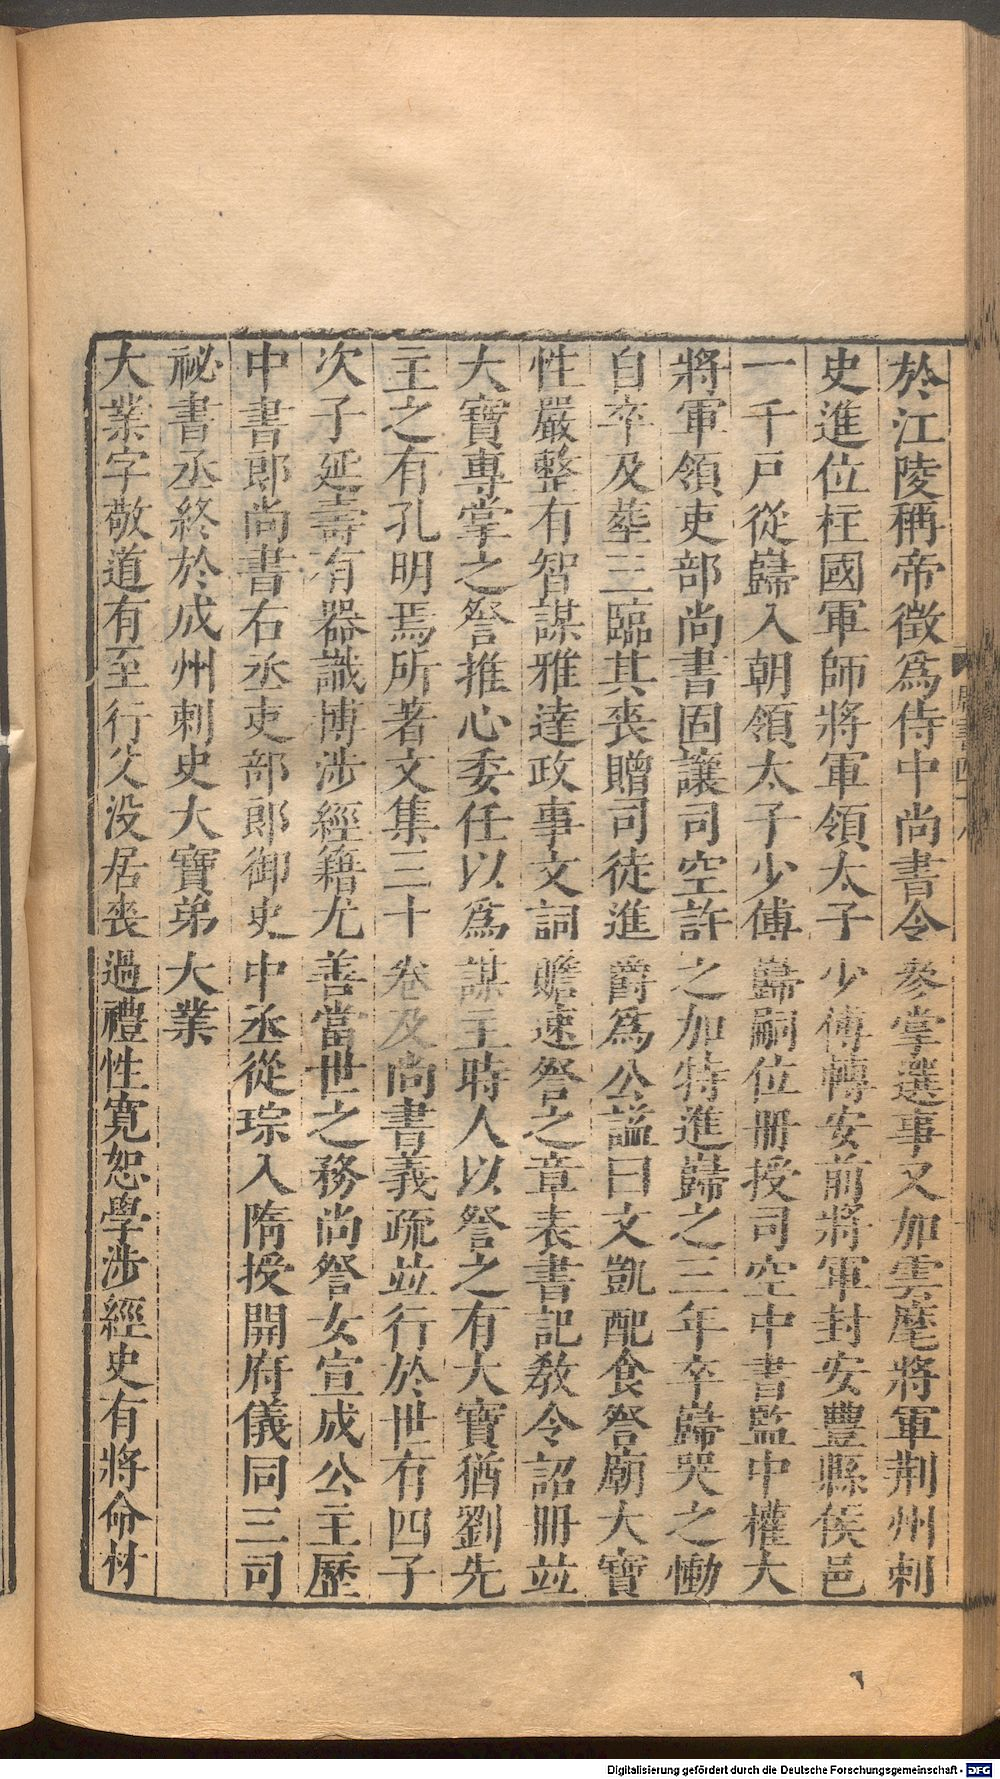 於江陵稱帝徵爲侍中尚書令參掌選事又加雲麾將軍荆州刺
史進位柱國軍師將軍領太子少傅轉安前將軍封安豐縣侯邑
一千戶從巋入朝領太子少傅巋嗣位册授司空中書監中權大
將軍領吏部尚書固讓司空許之加特進巋之三年卒巋哭之慟
自卒及葬三臨其喪贈司徒進爵爲公謚曰文凱配食詧廟大寶
性嚴整有智謀雅達政事文詞贍速詧之章表書記敎令詔册並
大寶專掌之詧推心委任以爲謀主時人以詧之有大寶猶劉先
主之有孔明焉所著文集三十卷及尚書義疏並行於世有四子
次子延壽有器識博涉經籍尤善當世之務尚詧女宣成公主歷
中書郎尚書右丞吏部郎御史中丞從琮入隋授開府儀同三司
祕書丞終於成州刺史大寶弟大業
大業字敬道有至行父没居喪過禮性寬恕學涉經史有將命材
Digitalisierung gefördert durch die Deutsche Forschungsgemeinschaft - DFG